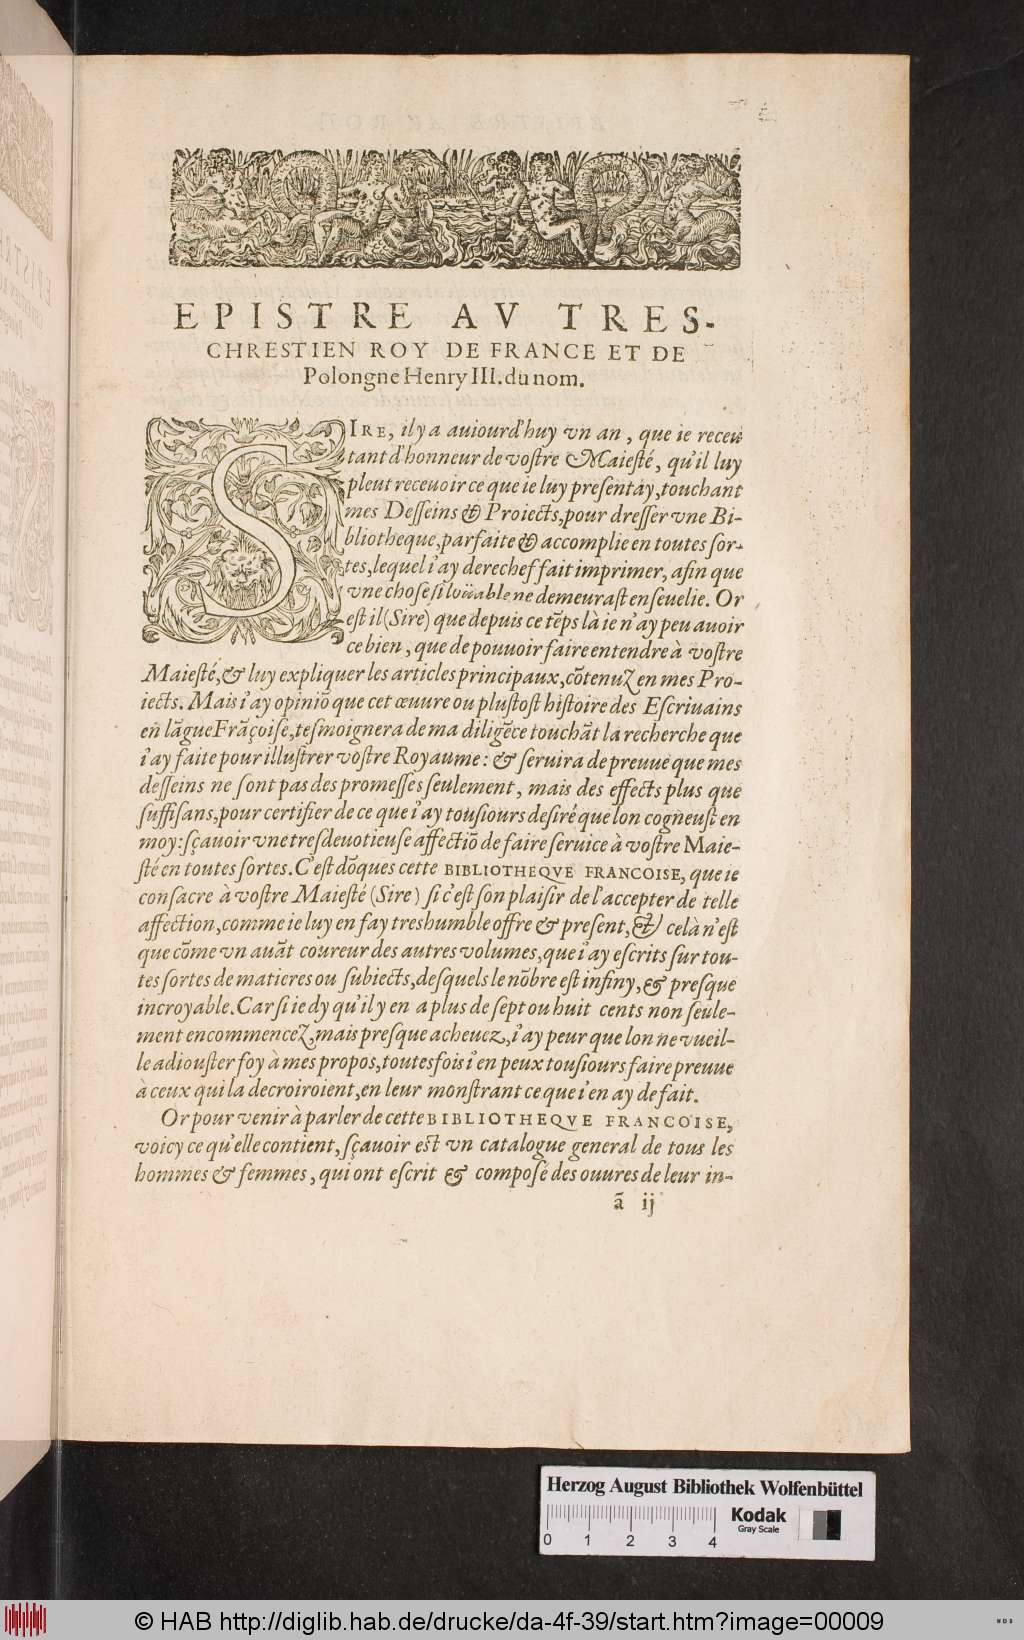 EPISTRE AV TRES-
CHRESTIEN ROY DE FRANCE ET DE
Polongne Henry III. du nom.
SIRE, il y a auiourd'huy vn an, que ie receu
tant d'honneur de vostre Maiesté, qu'il luy
pleut receuoir ce que ie luy presentay, touchant
mes Desseins & Proiects, pour dresser vne Bi-
bliotheque, parfaite & accomplie en toutes sor-
tes, lequel i'ay derechef fait imprimer, afin que
vne chose si loüable ne demeurast enseuelie. Or
est il (Sire) que depuis ce tẽps là ie n'ay peu auoir
ce bien, que de pouuoir faire entendre à vostre
Maiesté, & luy expliquer les articles principaux, cõtenuz en mes Pro-
iects. Mais i'ay opiniõ que cet œuure ou plustost histoire des Escriuains
en lãgue Frãçoise, tesmoignera de ma diligẽce touchãt la recherche que
i'ay faite pour illustrer vostre Royaume: & seruira de preuue que mes
desseins ne sont pas des promesses seulement, mais des effects plus que
suffisans, pour certifier de ce que i'ay tousiours desiré que lon cogneust en
moy: sçauoir vne tresdeuotieuse affectiõ de faire seruice à vostre Maie-
sté en toutes sortes. C'est dõques cette BIBLIOTHEQVE FRANCOISE, que ie
consacre à vostre Maiesté (Sire) si c'est son plaisir de l'accepter de telle
affection, comme ie luy en fay treshumble offre & present, & celà n'est
que cõme vn auãt coureur des autres volumes, que i'ay escrits sur tou-
tes sortes de matieres ou subiects, desquels le nõbre est infiny, & presque
incroyable. Car si ie dy qu'il y en a plus de sept ou huit cents non seule-
ment encommencez, mais presque acheuez, i'ay peur que lon ne vueil-
le adiouster foy à mes propos, toutesfois i'en peux tousiours faire preuue
à ceux qui la decroiroient, en leur monstrant ce que i'en ay de fait.
Or pour venir à parler de cette BIBLIOTHEQVE FRANCOISE,
voicy ce qu'elle contient, sçauoir est vn catalogue general de tous les
hommes & femmes, qui ont escrit & composé des ouures de leur in-
ã ij
Herzog August Bibliothek Wolfenbüttel
Kodak
Gray Scale
0 1 2 3 4
© HAB http://diglib.hab.de/drucke/da-4f-39/start.htm?image=00009